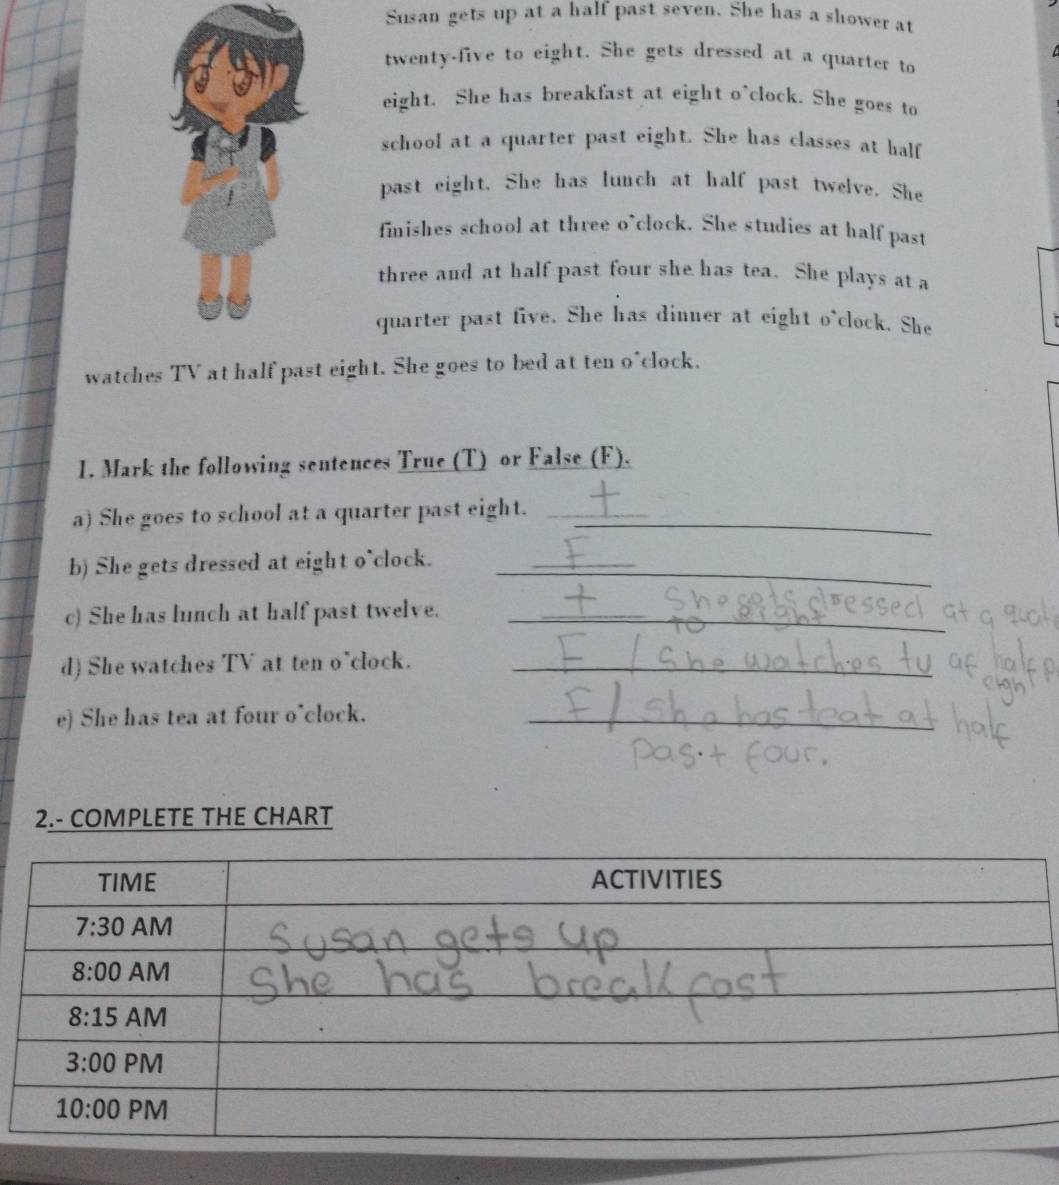 Susan gets up at a half past seven. She has a shower at
twenty-five to eight. She gets dressed at a quarter to
eight. She has breakfast at eight o'clock. She goes to
school at a quarter past eight. She has classes at half
past eight. She has lunch at half past twelve. She
finishes school at three o'clock. She studies at half past
three and at half past four she has tea. She plays at a
quarter past five. She has dinner at eight o'clock. She
watches TV at half past eight. She goes to bed at ten o'clock.
1. Mark the following sentences True (T) or False (F).
a) She goes to school at a quarter past eight. T
b) She gets dressed at eight o'clock. F
c) She has lunch at half past twelve. T She gets dressed at a
to eight
d) She watches TV at ten o'clock. F / She watches tv at half
e) She has tea at four o'clock. F / she has teat at half
past four.
2.- COMPLETE THE CHART
TIME ACTIVITIES
7:30 AM Susan gets up
8:00 AM She has breakfast
8:15 AM
3:00 PM
10:00 PM